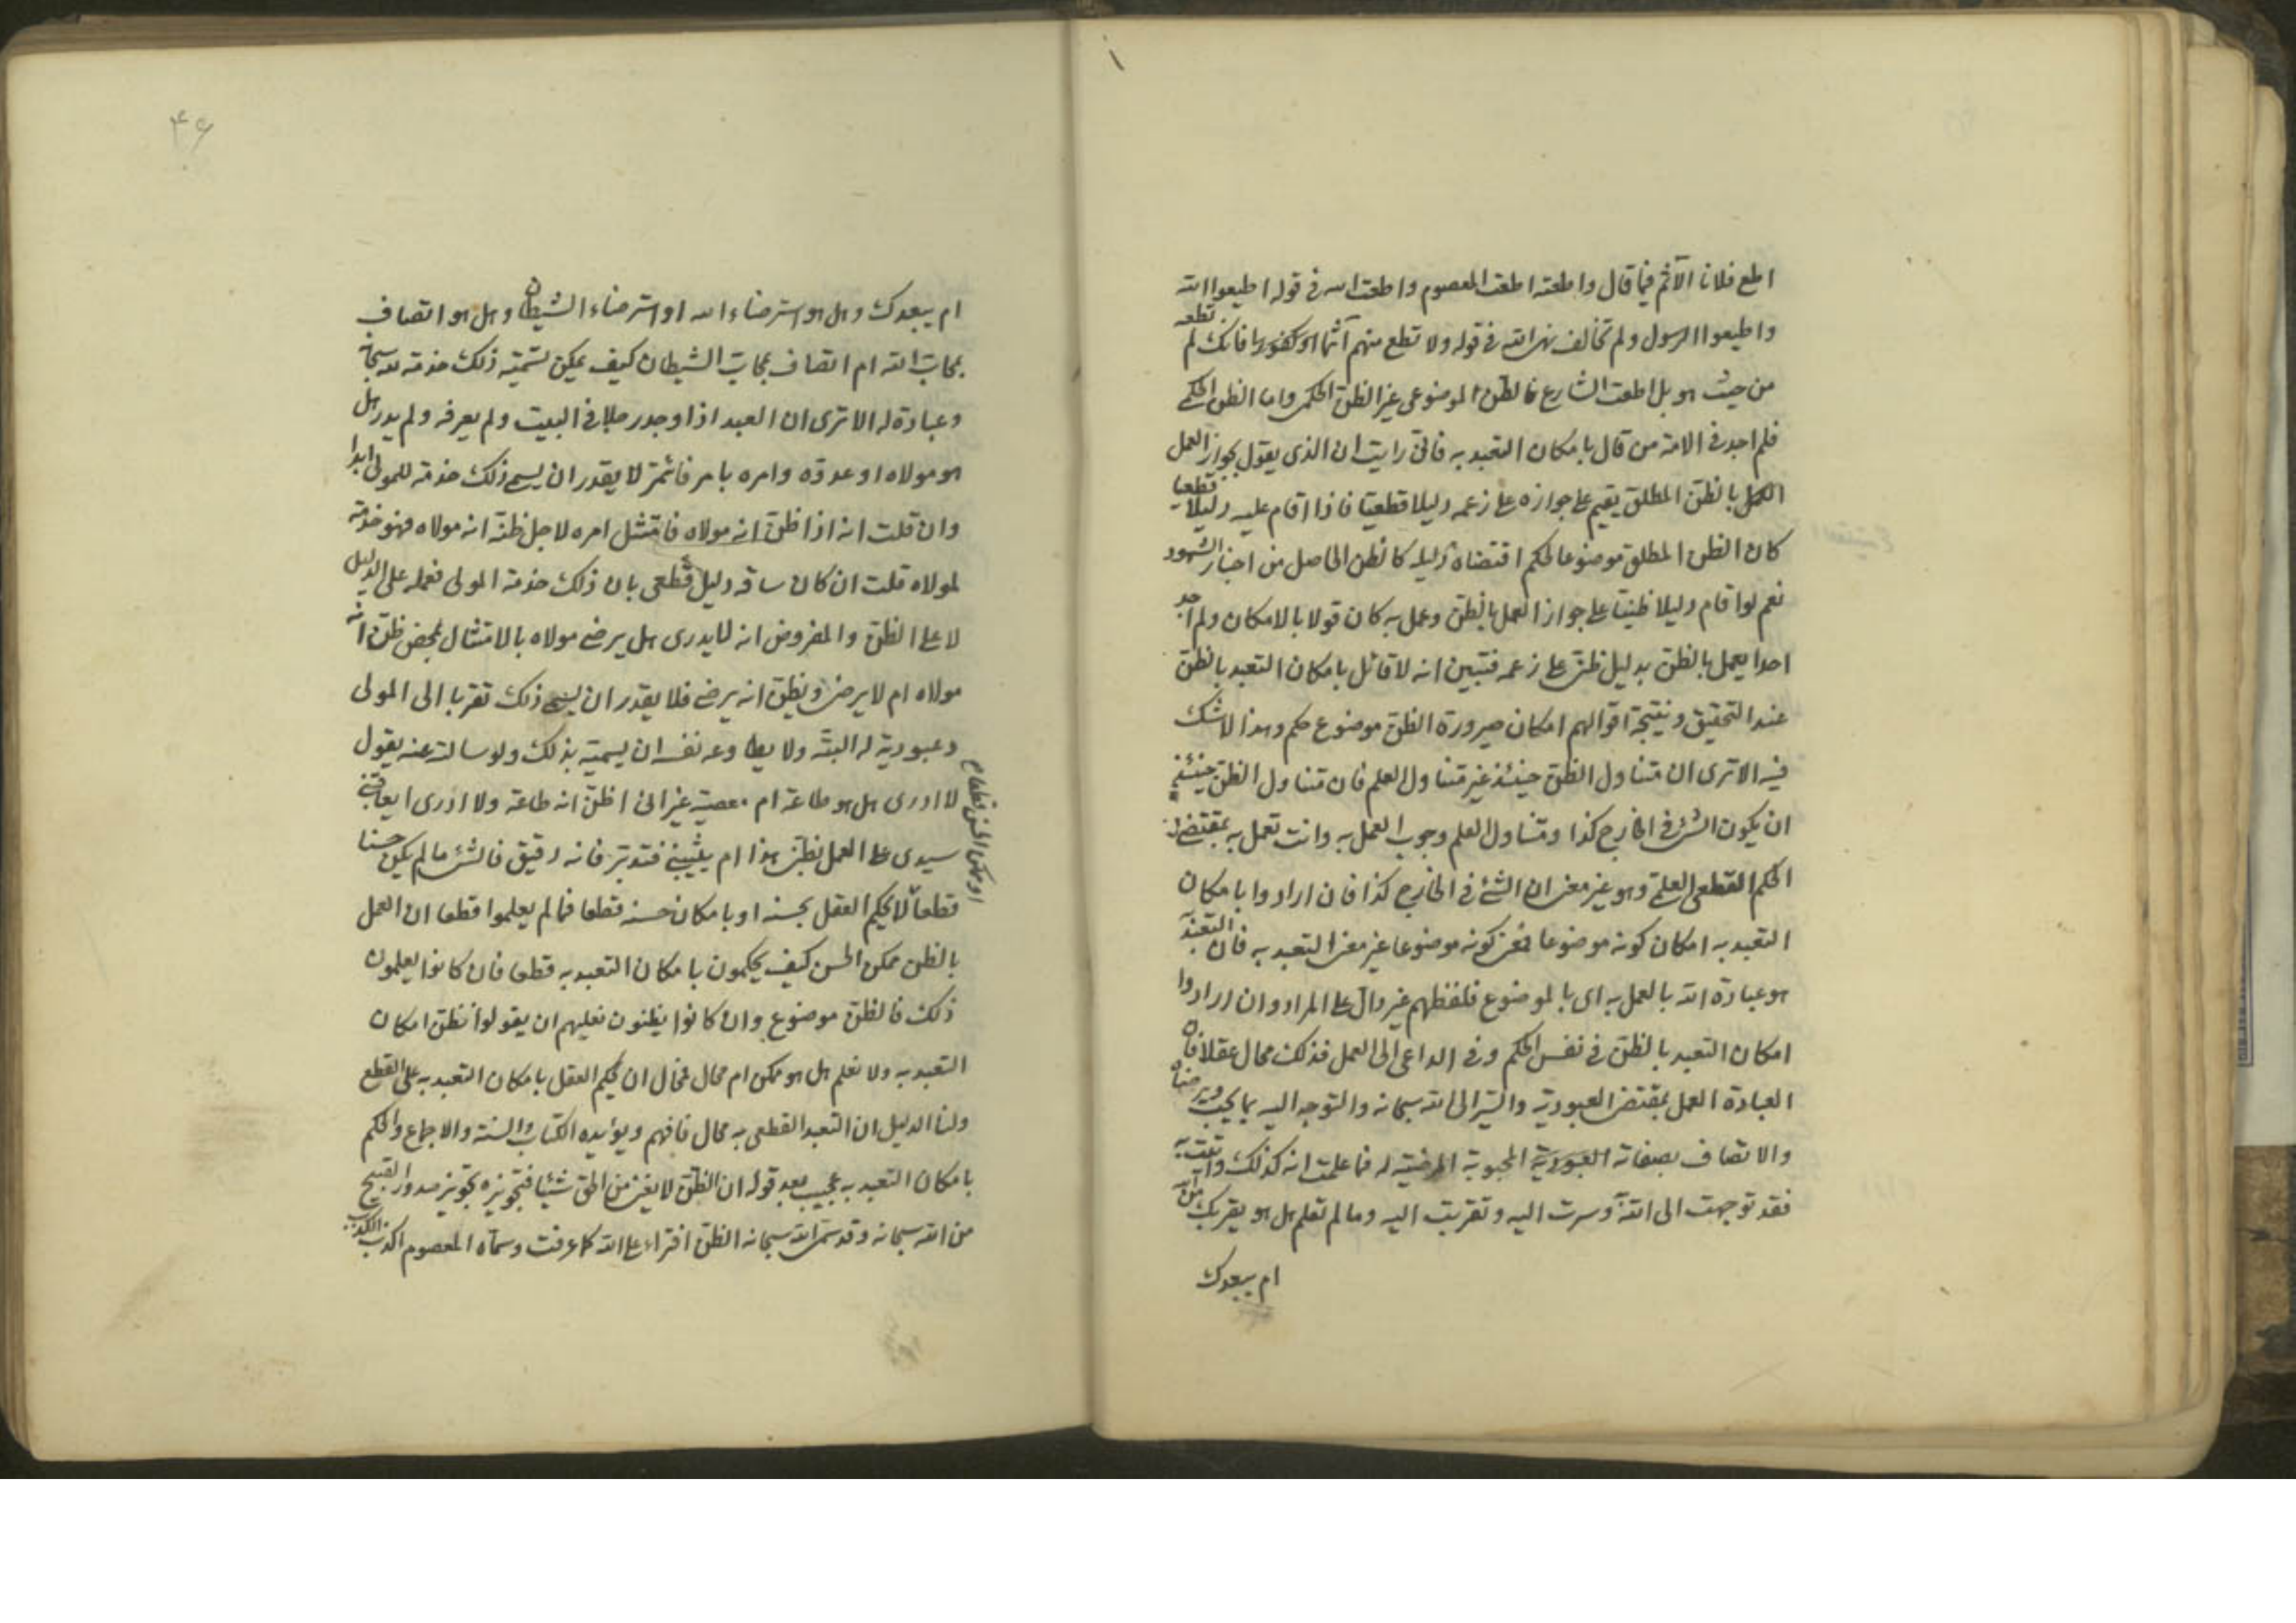 اطع فلانا الآثم فيما قال واطعته اطعت المعصوم واطعت الله في قوله اطيعوا الله
واطيعوا الرسول ولم تخالف نهي الله في قوله ولا تطع منهم آثما او كفورا فانك لم تطعه
من حيث هو بل اطعت الشارع فالظن الموضوعي غير الظن الحكمي واما الظن الحكمي
فلم اجد في الامة من قال بامكان التعبد به فاني رايت ان الذي يقول بجواز العمل
العمل بالظن المطلق يقيم على جوازه على زعمه دليلا قطعيا فاذا اقام عليه دليلا قطعيا
كان الظن المطلق موضوعا لحكم اقتضاه دليله كالظن الحاصل من اخبار الشهود
نعم لو اقام دليلا ظنيا على جواز العمل بالظن وعمل به كان قولا بالامكان ولم اجد
احدا يعمل بالظن بدليل ظني على زعمه فتبين انه لا قائل بامكان التعبد بالظن
عند التحقيق ونتيجة اقوالهم امكان صيرورة الظن موضوع حكم وهذا لا شك
فيه الا ترى ان متناول الظن حينئذ غير متناول العلم فان متناول الظن حينئذ
ان يكون الشئ في الخارج كذا ومتناول العلم وجوب العمل به وانت تعمل به بمقتضى
الحكم القطعي العلمي وهو غير معنى ان الشئ في الخارج كذا فان ارادوا بامكان
التعبد به امكان كونه موضوعا فمعنى كونه موضوعا غير معنى التعبد به فان التعبد
هو عبادة الله بالعمل به اي بالموضوع فلفظهم غير دال على المراد وان ارادوا
امكان التعبد بالظن في نفس الحكم وفي الداعي الى العمل فذلك محال عقلا فان
العبادة العمل بمقتضى العبودية والسير الى الله سبحانه والتوجه اليه بما يحب ويرضاه
والاتصاف بصفاته العبودية المحبوبة المرضية له فما علمت انه كذلك واتيت به
فقد توجهت الى الله وسرت اليه وتقربت اليه وما لم تعلم هل هو يقربك من الله
ام يبعدك
۴۶
ام يبعدك وهل هو استرضاء الله او استرضاء الشيطان وهل هو اتصاف
بمحاب الله ام اتصاف بمحاب الشيطان كيف يمكن تسميته ذلك خدمة لله سبحانه
وعبادة له الا ترى ان العبد اذا وجد رجلا في البيت ولم يعرفه ولم يدر هل
هو مولاه او عدوه وامره بامر فائتمر لا يقدر ان يسمي ذلك خدمة للمولى ابدا
وان قلت انه اذا ظن انه مولاه فامتثل امره لاجل ظنه انه مولاه فهو خدمة
لمولاه قلت ان كان ساقه دليل قطعي بان ذلك خدمة المولى فعمله على الدليل
لا على الظن والمفروض انه لا يدري هل يرضى مولاه بالامتثال لمحض ظن انه
مولاه ام لا يرضى ويظن انه يرضى فلا يقدر ان يسمي ذلك تقربا الى المولى
وعبودية له البتة ولا يطاوعه نفسه ان يسميه بذلك ولو سالته عنه يقول
لا ادري هل هو طاعة ام معصية غير اني اظن انه طاعة ولا ادري ايعاقبني
سيدي على العمل بظني هذا ام يثيبني فتدبر فانه دقيق فالشئ ما لم يكن حسنا
او ممكن الحسن قطعا م
قطعا لا يحكم العقل بحسنه او بامكان حسنه قطعا فما لم يعلموا قطعا ان العمل
بالظن ممكن الحسن كيف يحكمون بامكان التعبد به قطعا فان كانوا يعلمون
ذلك فالظن موضوع وان كانوا يظنون فعليهم ان يقولوا نظن امكان
التعبد به ولا نعلم هل هو ممكن ام محال فمحال ان يحكم العقل بامكان التعبد به على القطع
ولنا الدليل ان التعبد القطعي به محال فافهم ويؤيده الكتاب والسنة والاجماع والحكم
بامكان التعبد به عجيب بعد قوله ان الظن لا يغني من الحق شيئا فتجويزه تجويز صدور القبيح
من الله سبحانه وقد سمى الله سبحانه الظن افتراء على الله كما عرفت وسماه المعصوم اكذب الكذب